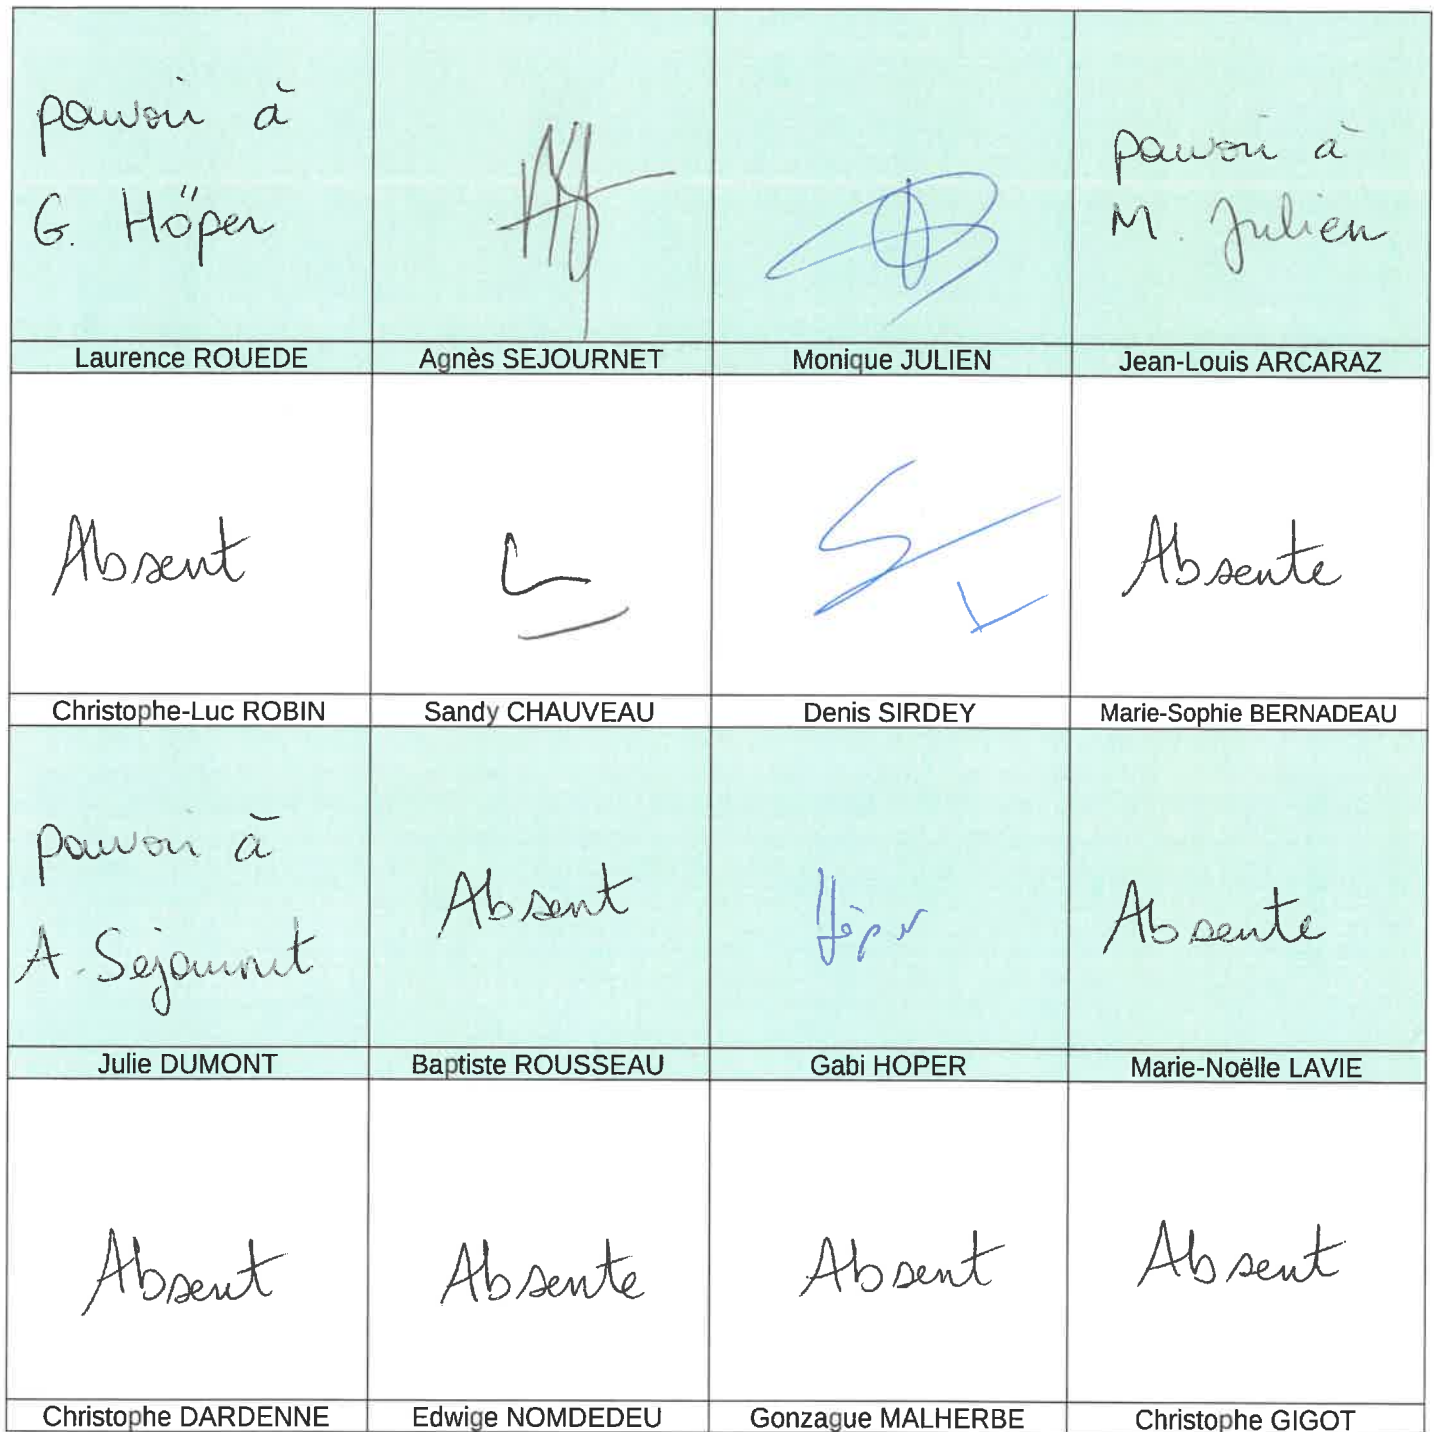 pouvoir à
G. Höper
pouvoir à
M. Julien
Laurence ROUEDE
Agnès SEJOURNET
Monique JULIEN
Jean-Louis ARCARAZ
Absent
Absente
Christophe-Luc ROBIN
Sandy CHAUVEAU
Denis SIRDEY
Marie-Sophie BERNADEAU
pouvoir à
A. Sejournet
Absent
Höper
Absente
Julie DUMONT
Baptiste ROUSSEAU
Gabi HOPER
Marie-Noëlle LAVIE
Absent
Absente
Absent
Absent
Christophe DARDENNE
Edwige NOMDEDEU
Gonzague MALHERBE
Christophe GIGOT